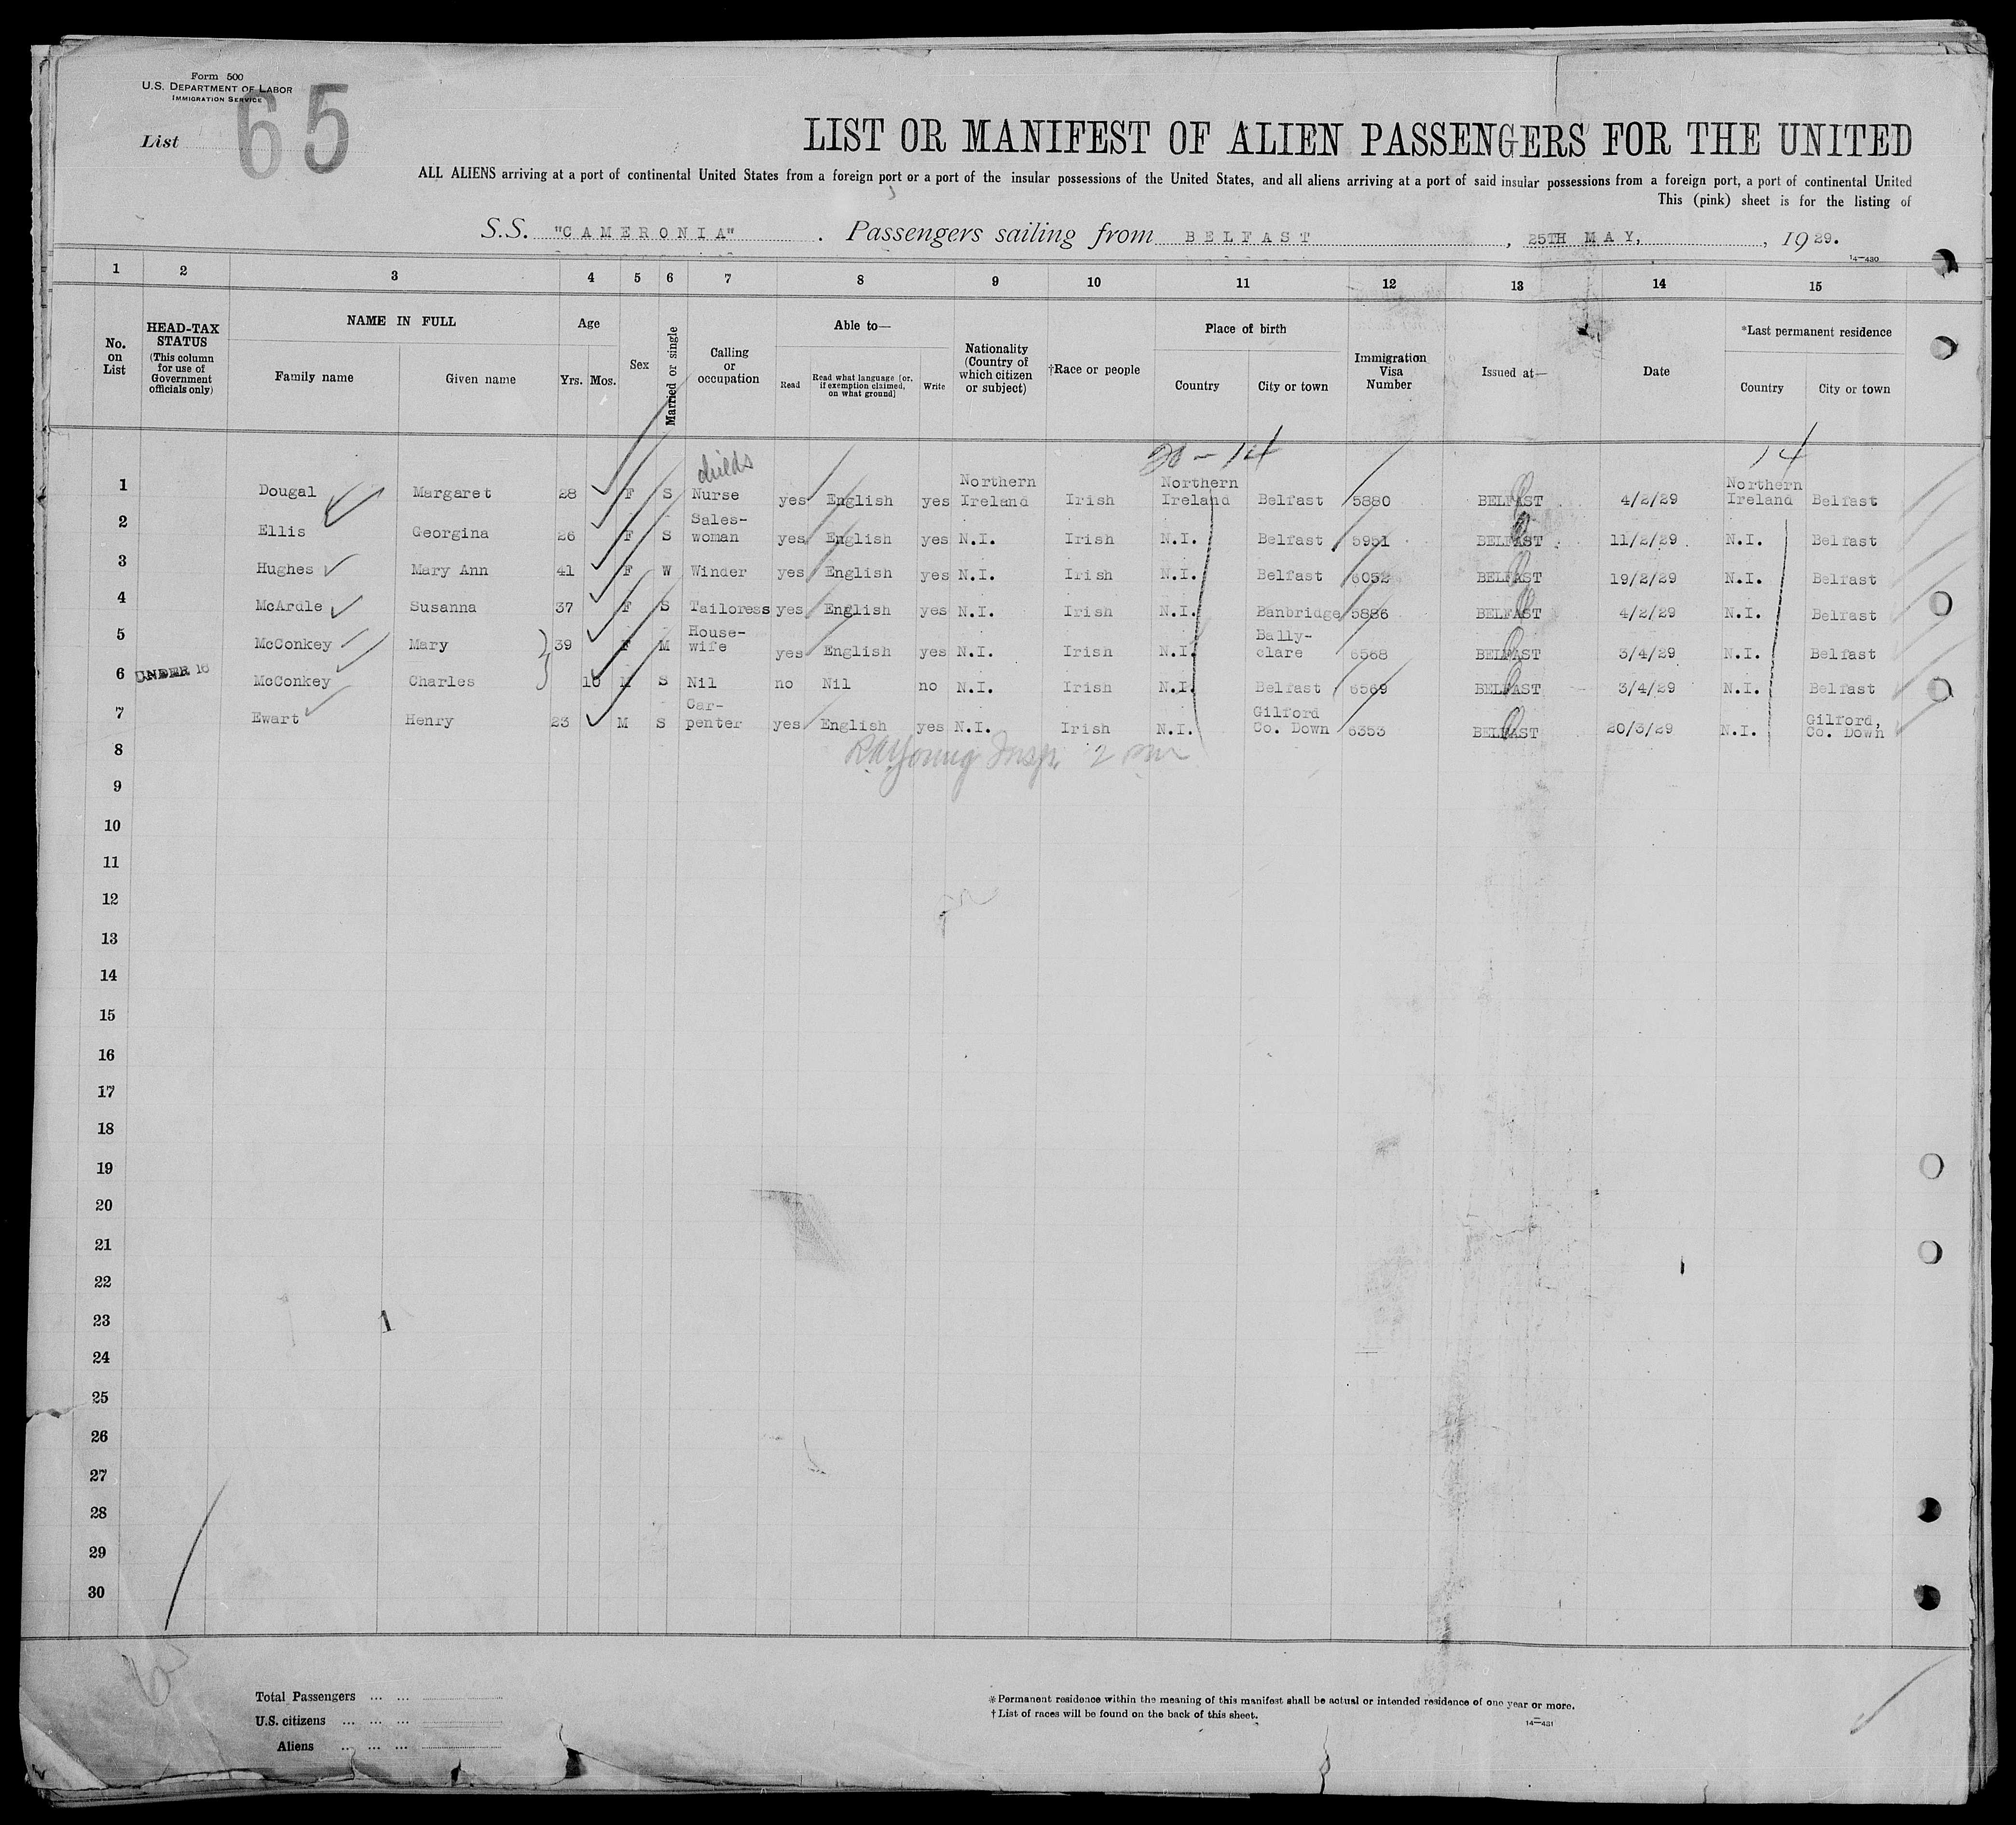 Form 500
U.S. DEPARTMENT OF LABOR
IMMIGRATION SERVICE
List 65
LIST OR MANIFEST OF ALIEN PASSENGERS FOR THE UNITED
ALL ALIENS arriving at a port of continental United States from a foreign port or a port of the insular possessions of the United States, and all aliens arriving at a port of said insular possessions from a foreign port, a port of continental United
This (pink) sheet is for the listing of
S.S. "CAMERONIA". Passengers sailing from BELFAST, 25TH MAY, 1929.
14—430
1 2 3 4 5 6 7 8 9 10 11 12 13 14 15
No. on List
HEAD-TAX STATUS (This column for use of Government officials only)
NAME IN FULL
Family name Given name
Age
Yrs. Mos.
Sex
Married or single
Calling or occupation
Able to—
Read Read what language [or, if exemption claimed, on what ground] Write
Nationality (Country of which citizen or subject)
†Race or people
Place of birth
Country City or town
Immigration Visa Number
Issued at—
Date
*Last permanent residence
Country City or town
20 - 14 14
childs
1 Dougal Margaret 28 F S Nurse yes English yes Northern Ireland Irish Northern Ireland Belfast 5880 BELFAST 4/2/29 Northern Ireland Belfast
2 Ellis Georgina 26 F S Sales-woman yes English yes N.I. Irish N.I. Belfast 5951 BELFAST 11/2/29 N.I. Belfast
3 Hughes Mary Ann 41 F W Winder yes English yes N.I. Irish N.I. Belfast 6052 BELFAST 19/2/29 N.I. Belfast
4 McArdle Susanna 37 F S Tailoress yes English yes N.I. Irish N.I. Banbridge 5886 BELFAST 4/2/29 N.I. Belfast
5 McConkey Mary 39 F M House-wife yes English yes N.I. Irish N.I. Bally-clare 6568 BELFAST 3/4/29 N.I. Belfast
6 UNDER 16 McConkey Charles 10 M S Nil no Nil no N.I. Irish N.I. Belfast 6569 BELFAST 3/4/29 N.I. Belfast
7 Ewart Henry 23 M S Car-penter yes English yes N.I. Irish N.I. Gilford Co. Down 6353 BELFAST 20/3/29 N.I. Gilford, Co. Down
8
Young Insp.
9
10
11
12
13
14
15
16
17
18
19
20
21
22
23
24
25
26
27
28
29
30
Total Passengers ... ...
U.S. citizens ... ... ...
Aliens ... ... ...
*Permanent residence within the meaning of this manifest shall be actual or intended residence of one year or more.
†List of races will be found on the back of this sheet.
14—431